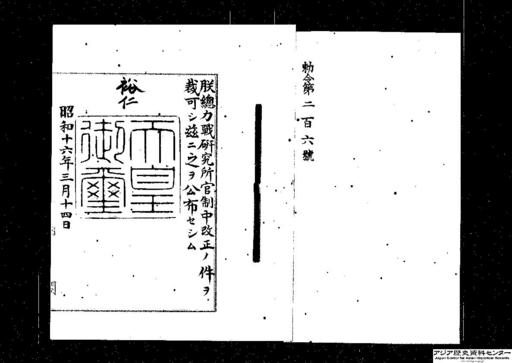 勅令第二百六號
朕總力戰研究所官制中改正ノ件ヲ
裁可シ茲ニ之ヲ公布セシム
裕仁
天皇
御璽
昭和十六年三月十四日
アジア歴史資料センター
Japan Center for Asian Historical Records